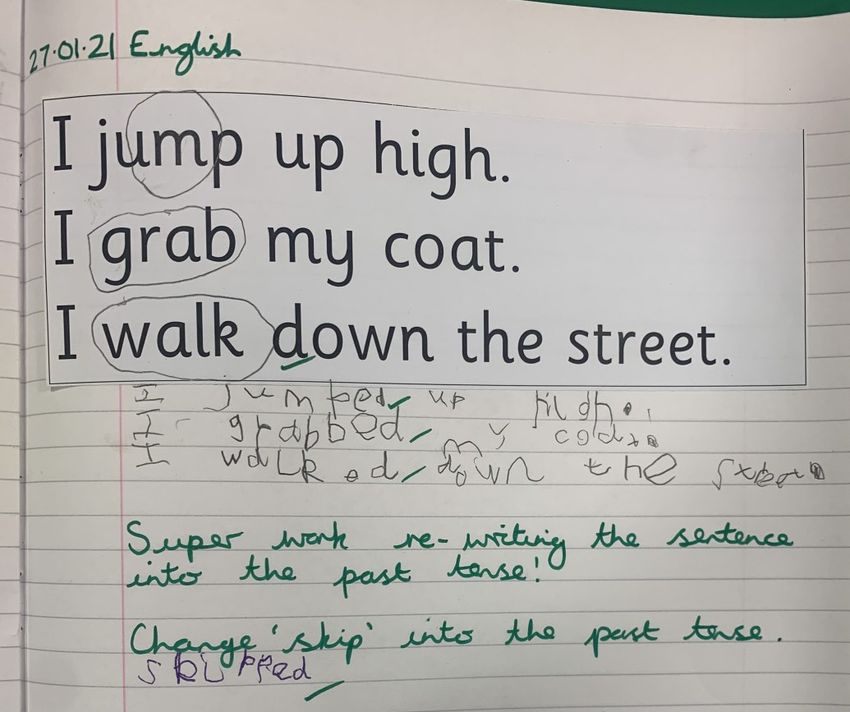 27.01.21 English
I jump up high.
I grab my coat.
I walk down the street.
I jumped up high.
I grabbed my coat.
I walked down the street
Super work re-writing the sentence
into the past tense!
Change 'skip' into the past tense.
skipped